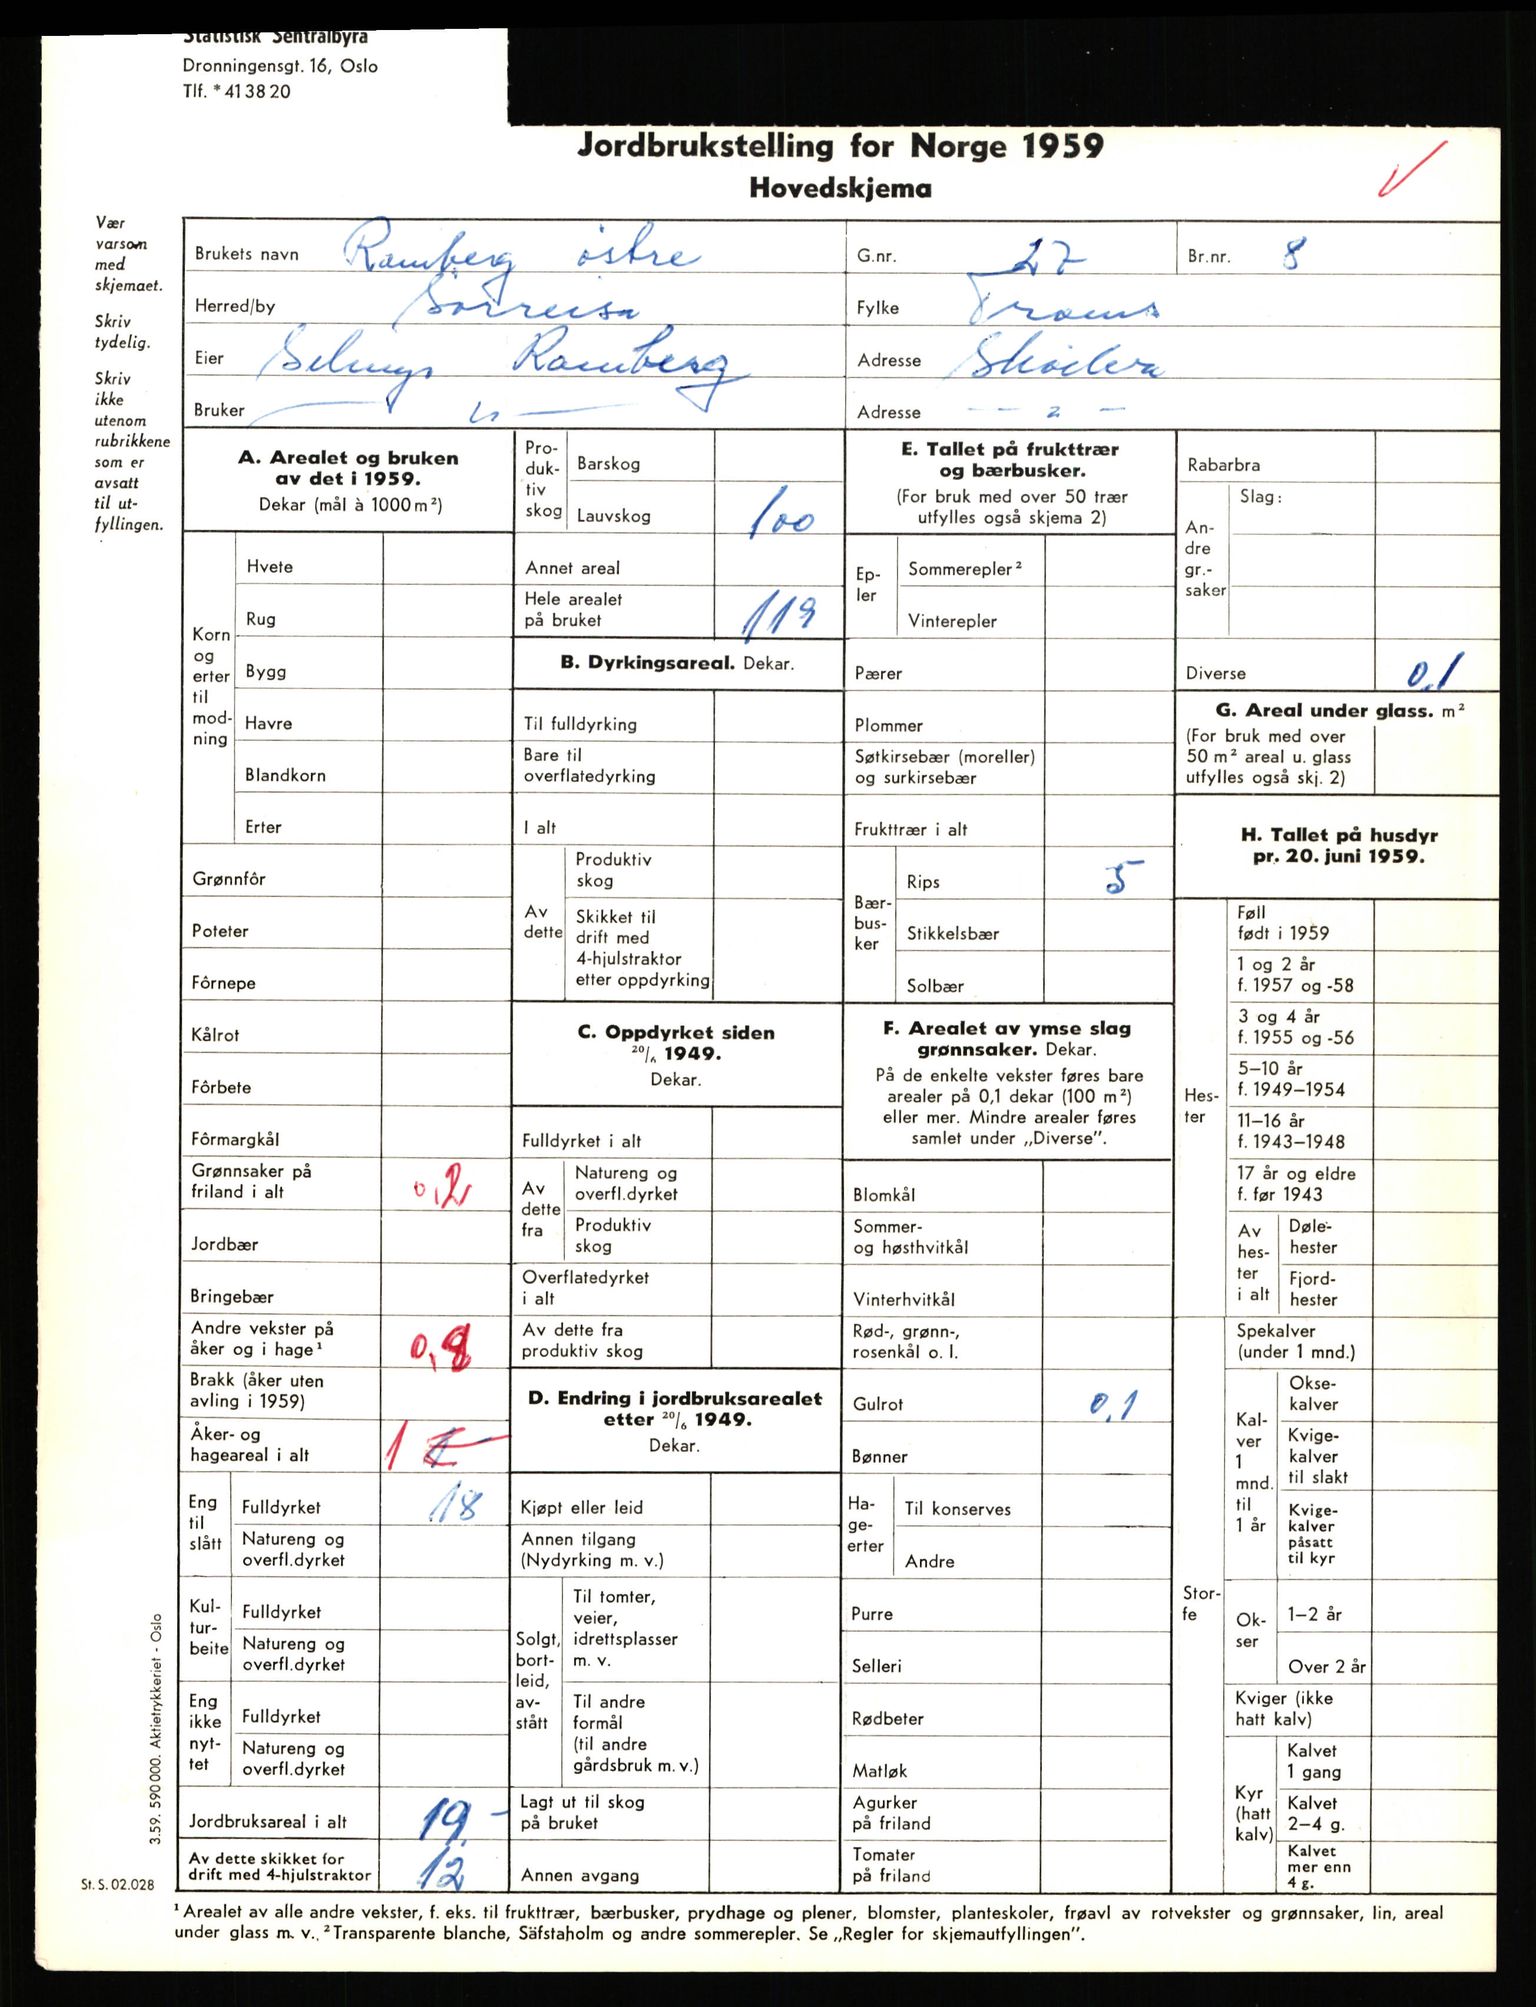 Statistisk Sentralbyrå
Dronningensgt. 16, Oslo
Tlf. * 41 38 20
Jordbrukstelling for Norge 1959
Hovedskjema
Vær
varsom
med
skjemaet.
Skriv
tydelig.
Skriv
ikke
utenom
rubrikkene
som er
avsatt
til ut-
fyllingen.
Brukets navn Ramberg østre G.nr. 27 Br.nr. 8
Herred/by Sørreisa Fylke Troms
Eier Ramberg Adresse
Bruker — " — Adresse - - " -
A. Arealet og bruken
av det i 1959.
Dekar (mål à 1000 m²)
Korn
og
erter
til
mod-
ning
Hvete
Rug
Bygg
Havre
Blandkorn
Erter
Grønnfôr
Poteter
Fôrnepe
Kålrot
Fôrbete
Fôrmargkål
Grønnsaker på
friland i alt 0,2
Jordbær
Bringebær
Andre vekster på
åker og i hage¹ 0,8
Brakk (åker uten
avling i 1959)
Åker- og
hageareal i alt 1
Eng
til
slått
Fulldyrket 18
Natureng og
overfl.dyrket
Kul-
tur-
beite
Fulldyrket
Natureng og
overfl.dyrket
Eng
ikke
nyt-
tet
Fulldyrket
Natureng og
overfl.dyrket
Jordbruksareal i alt 19 -
Av dette skikket for
drift med 4-hjulstraktor 12
Pro-
duk-
tiv
skog
Barskog
Lauvskog 100
Annet areal
Hele arealet
på bruket 119
B. Dyrkingsareal. Dekar.
Til fulldyrking
Bare til
overflatedyrking
I alt
Av
dette
Produktiv
skog
Skikket til
drift med
4-hjulstraktor
etter oppdyrking
C. Oppdyrket siden
20/6 1949.
Dekar.
Fulldyrket i alt
Av
dette
fra
Natureng og
overfl.dyrket
Produktiv
skog
Overflatedyrket
i alt
Av dette fra
produktiv skog
D. Endring i jordbruksarealet
etter 20/6 1949.
Dekar.
Kjøpt eller leid
Annen tilgang
(Nydyrking m. v.)
Solgt,
bort-
leid,
av-
stått
Til tomter,
veier,
idrettsplasser
m. v.
Til andre
formål
(til andre
gårdsbruk m. v.)
Lagt ut til skog
på bruket
Annen avgang
E. Tallet på frukttrær
og bærbusker.
(For bruk med over 50 trær
utfylles også skjema 2)
Ep-
ler
Sommerepler²
Vinterepler
Pærer
Plommer
Søtkirsebær (moreller)
og surkirsebær
Frukttrær i alt
Bær-
bus-
ker
Rips 5
Stikkelsbær
Solbær
F. Arealet av ymse slag
grønnsaker. Dekar.
På de enkelte vekster føres bare
arealer på 0,1 dekar (100 m²)
eller mer. Mindre arealer føres
samlet under „Diverse".
Blomkål
Sommer-
og høsthvitkål
Vinterhvitkål
Rød-, grønn-,
rosenkål o. l.
Gulrot 0,1
Bønner
Ha-
ge-
erter
Til konserves
Andre
Purre
Selleri
Rødbeter
Matløk
Agurker
på friland
Tomater
på friland
Rabarbra
An-
dre
gr.-
saker
Slag:
Diverse 0,1
G. Areal under glass. m²
(For bruk med over
50 m² areal u. glass
utfylles også skj. 2)
H. Tallet på husdyr
pr. 20. juni 1959.
Hes-
ter
Føll
født i 1959
1 og 2 år
f. 1957 og -58
3 og 4 år
f. 1955 og -56
5–10 år
f. 1949–1954
11–16 år
f. 1943–1948
17 år og eldre
f. før 1943
Av
hes-
ter
i alt
Døle-
hester
Fjord-
hester
Stor-
fe
Spekalver
(under 1 mnd.)
Kal-
ver
1
mnd.
til
1 år
Okse-
kalver
Kvige-
kalver
til slakt
Kvige-
kalver
påsatt
til kyr
Ok-
ser
1–2 år
Over 2 år
Kviger (ikke
hatt kalv)
Kyr
(hatt
kalv)
Kalvet
1 gang
Kalvet
2–4 g.
Kalvet
mer enn
4 g.
3.59. 590 000. Aktietrykkeriet - Oslo
St. S. 02.028
¹ Arealet av alle andre vekster, f. eks. til frukttrær, bærbusker, prydhage og plener, blomster, planteskoler, frøavl av rotvekster og grønnsaker, lin, areal
under glass m. v. ² Transparente blanche, Säfstaholm og andre sommerepler. Se „Regler for skjemautfyllingen".